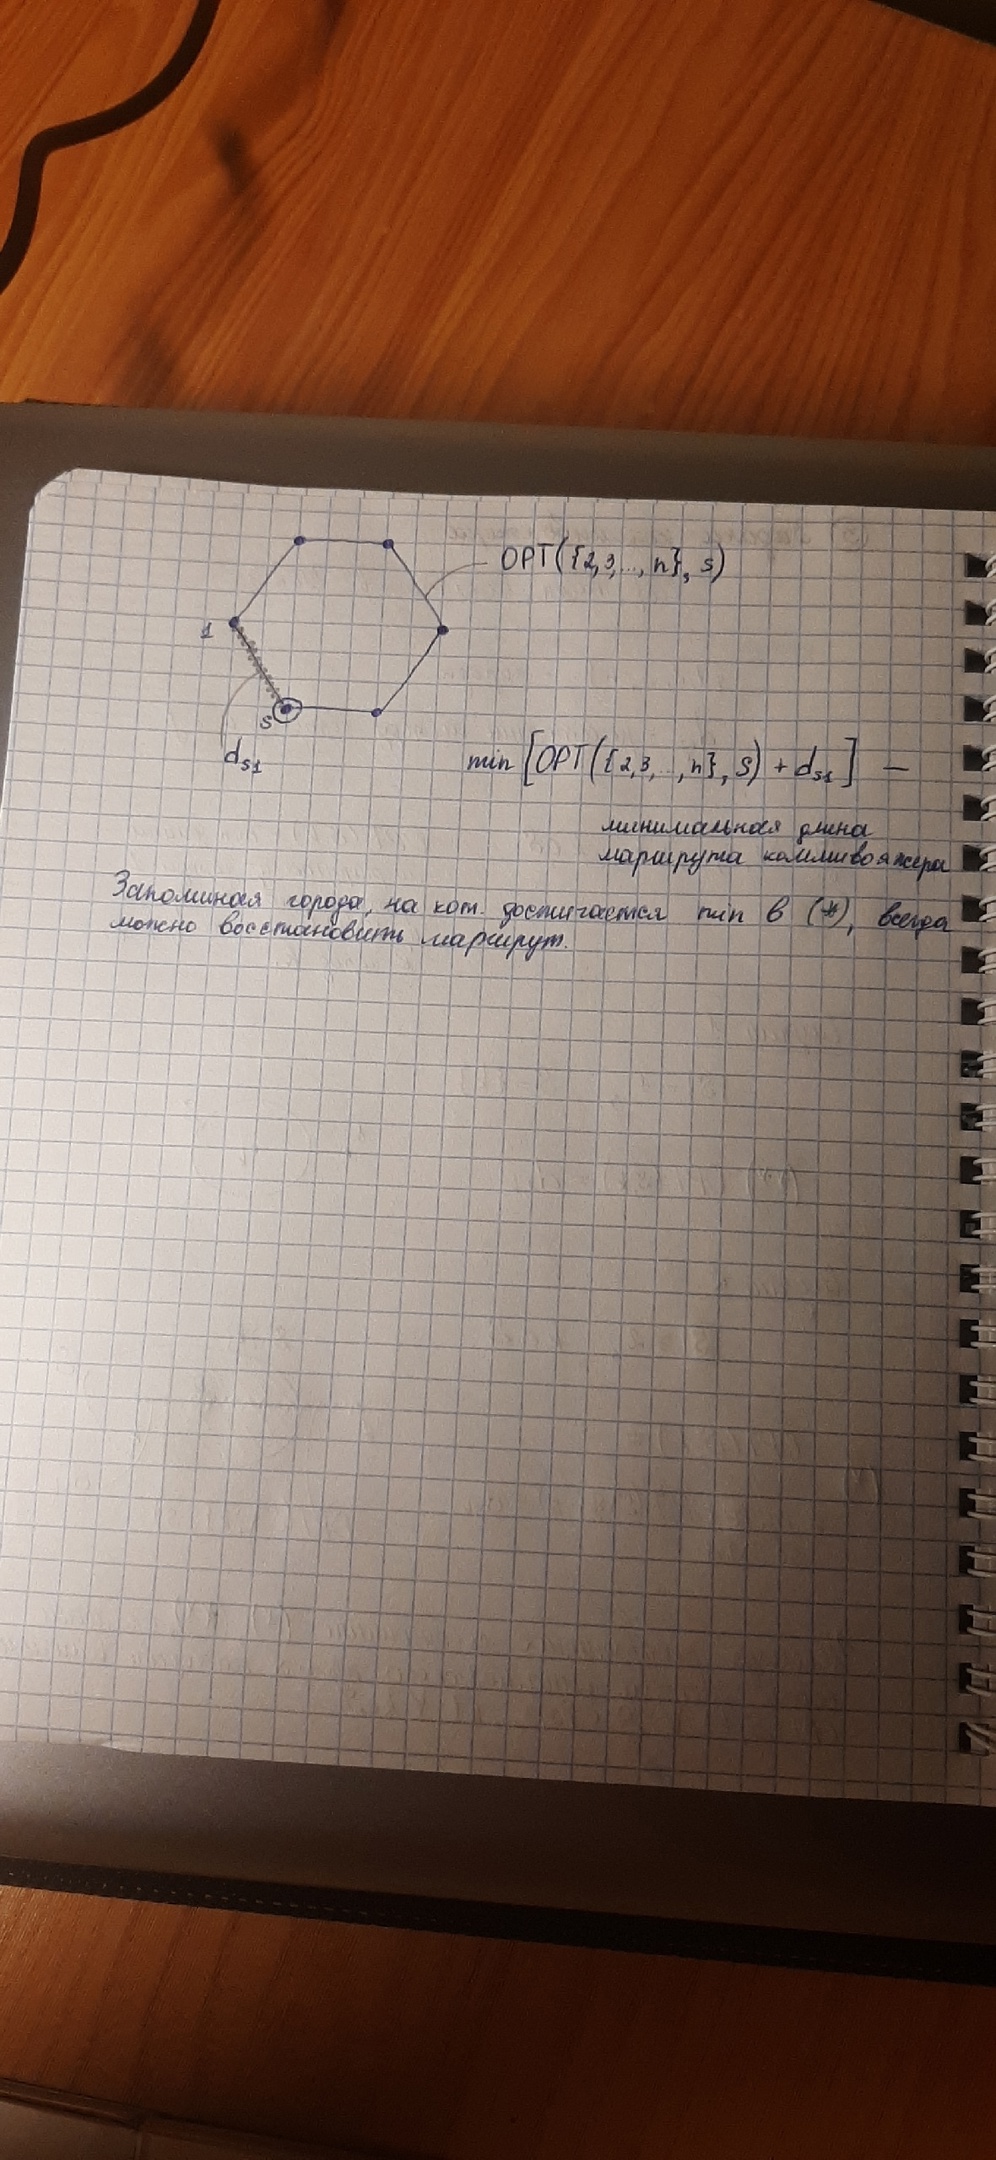 OPT({2,3,...,n}, s)
1
s
d_{s1}
min [OPT({2,3,...,n}, s) + d_{s1}] —
минимальная длина
маршрута коммивояжера
Запоминая города, на кот. достигается min в (*), всегда
можно восстановить маршрут.